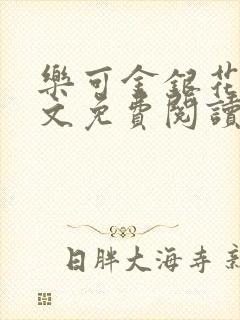 樂可金銀花
文免費閱讀
日胖大海寺新